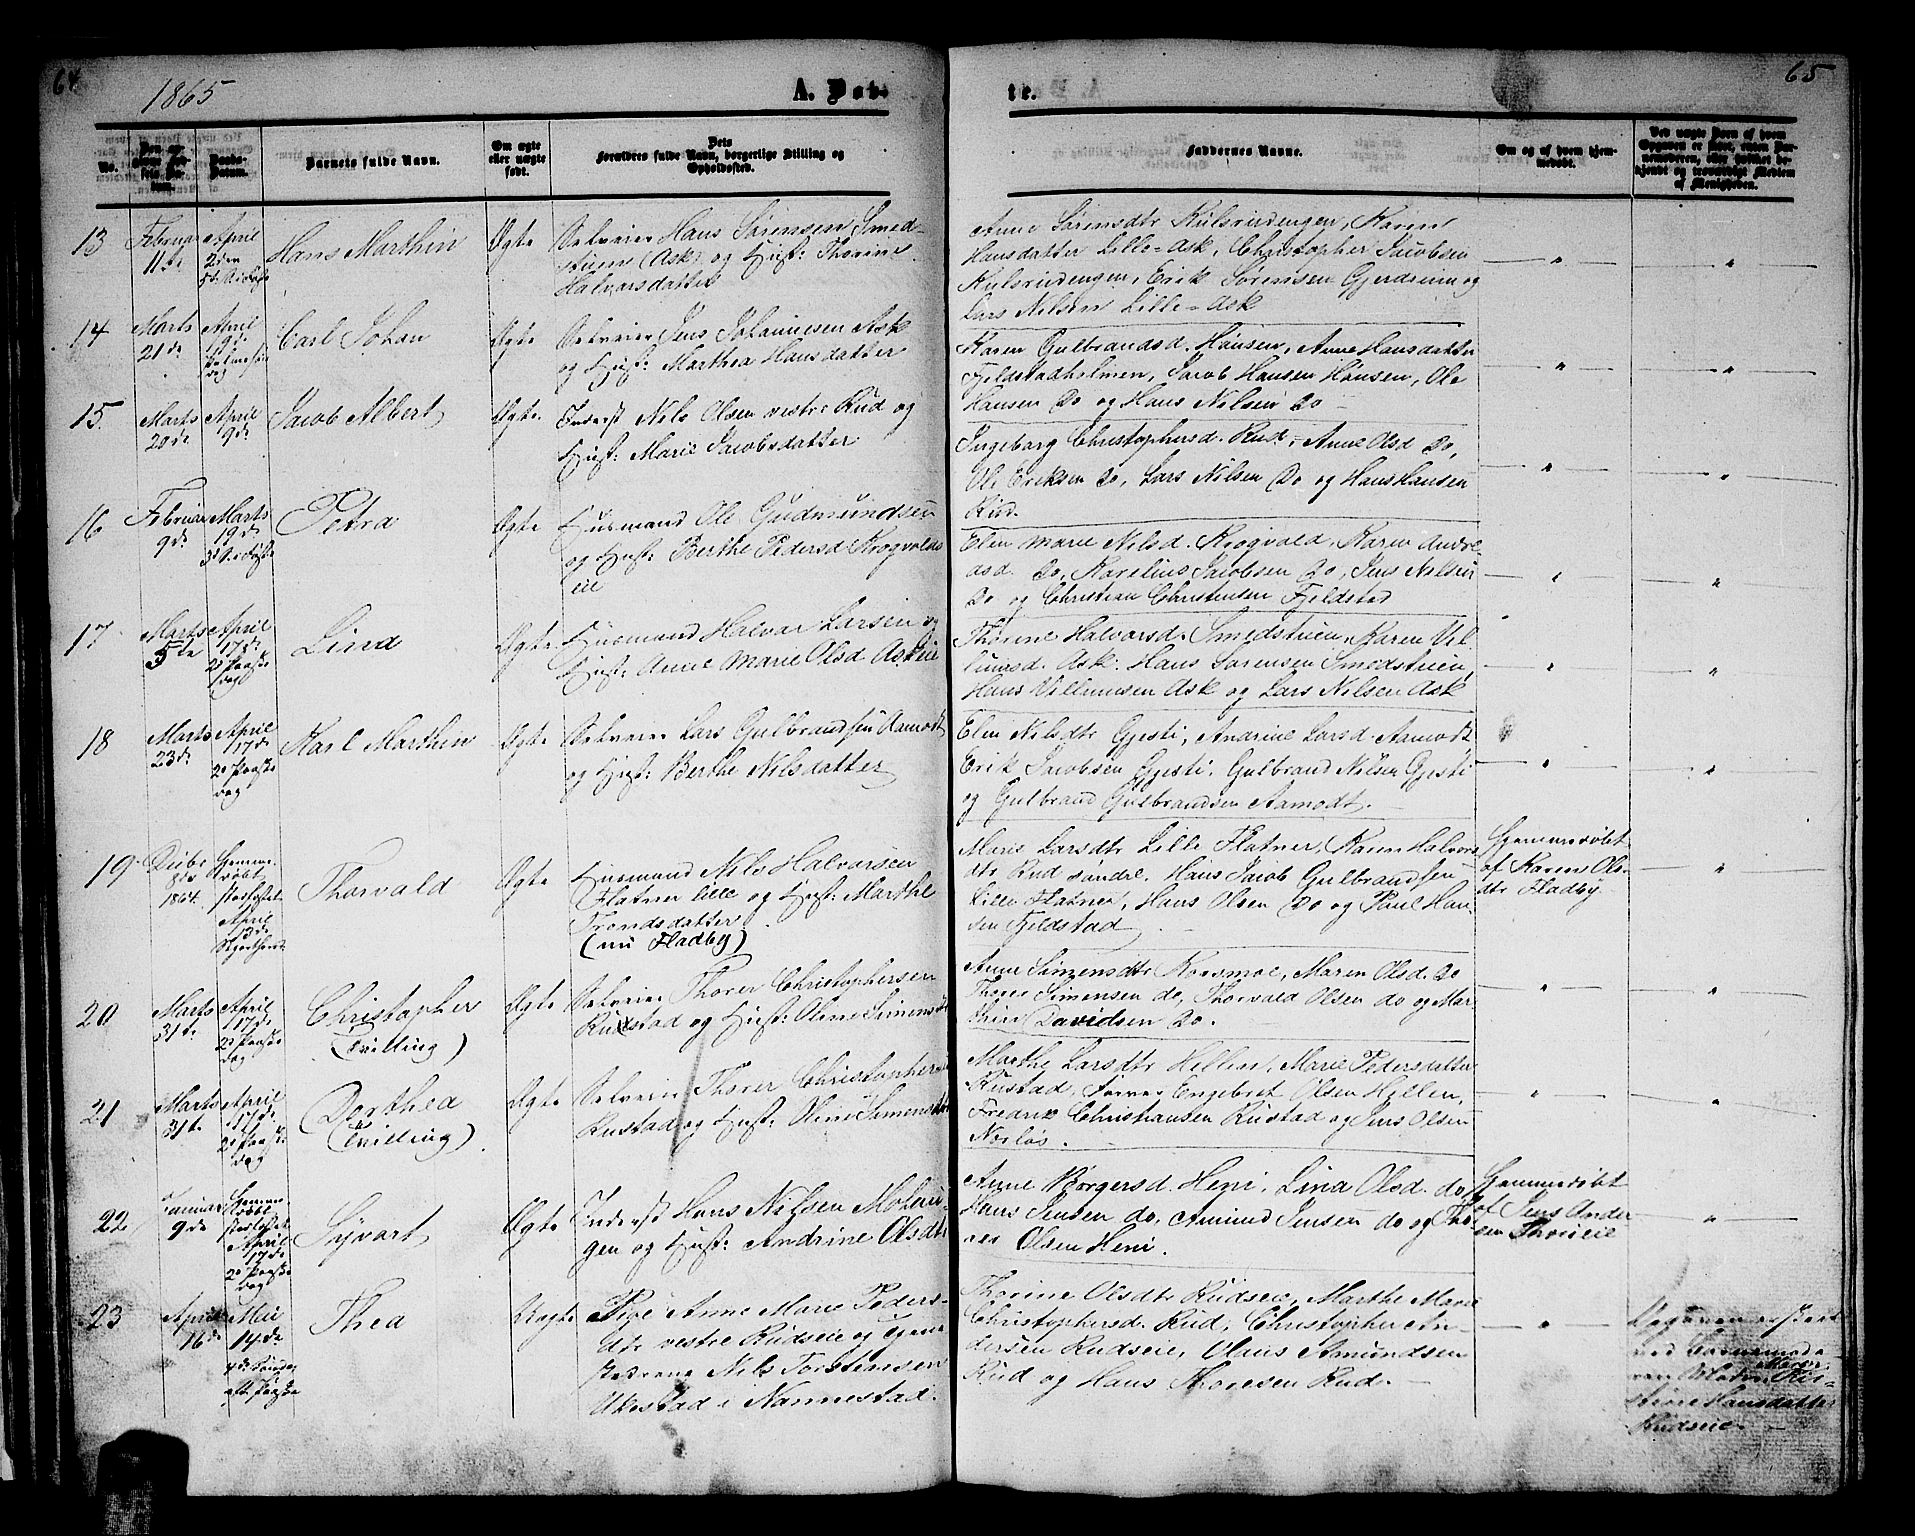 64
1865
A. Døb-
te.
65
No.
Barnets fulde Navn.
Om ægte
eller uægte
født.
Dets
Forældres fulde Navn, borgerlige Stilling og
Opholdssted.
Faddernes Navne.
Om og af hvem hjem-
medøbt.
13
Februar
11te
April
2den
Hans Marthin
Ægte
Selveier Hans Sørensen Smed-
stuen (Ask) og Hust: Thorine
Halvorsdatter
Anne Sørensdtr Kulsrudengen, Karen
Hansdatter Lille-Ask, Christopher Jacobsen
Kulsrudengen, Erik Sørensen Gjerdrum og
Lars Nilsen Lille-Ask
14
Marts
21de
April
9de
Carl Johan
Ægte
Selveier Jens Johannesen Ask
og Hust: Marthea Hansdatter
Karen Gulbrandsd. Hansen, Anne Hansdatter
Fjeldstadholmen, Jacob Hansen Hansen, Ole
Hansen Do og Hans Nilsen Do
15.
Marts
20de
April
9de
Jacob Albert
Ægte
Inderst Nils Olsen vestre Rud og
Hust: Marie Jacobsdatter
Ingeborg Christophersd. Rud, Anne Olsd Do,
Ole Eriksen Do, Lars Nilsen Do og Hans Hansen
Rud.
16
Februar
9de
Marts
19de
Petra
Ægte
Husmand Ole Gudmundsen
og Hust: Berthe Pedersd Krogvolds
eie
Elen Marie Nilsd. Krogvold, Karen Andre-
asd. Do, Karelius Jacobsen Do, Jens Nilsen
Do og Christian Christensen Fjeldstad
17
Marts
5te
April
17de
2d Paaske
dag
Lina
Ægte
Husmand Halvor Larsen og
Hust: Anne Marie Olsd Askeie
Thorine Halvorsd. Smedstuen, Karen Vil-
lumsd. Ask: Hans Sørensen Smedstuen,
Hans Villumsen Ask og Lars Nilsen Ask
18
Marts
23de
April
17de
2d Paaske
dag
Karl Marthin
Ægte
Selveier Lars Gulbrandsen Aamodt
og Hust: Berthe Nilsdatter
Elen Nilsdtr Gjesti, Andrine Larsd. Aamodt
Erik Jacobsen Gjesti, Gulbrand Nilsen Gjesti
og Gulbrand Gulbrandsen Aamodt.
19
Decbr
1864.
Hjemme-
døbt
April
13de
Thorvald
Ægte
Husmand Nils Halvorsen
Flatner lille og Hust: Marthe
Trondsdatter
(nu Fladby)
Maris Larsdtr Lille Flatner, Karen Halvors-
dtr Rud søndre, Hans Jacob Gulbrandsen
Lille Flatner, Hans Olsen Do og Paul Han-
sen Fjeldstad
Hjemmedøbt
af Karen Ols-
dtr Fladby.
20
Marts
31te
April
17de
2d Paaske
dag
Christopher
(Tvilling)
Ægte
Selveier Thorer Christophersen
Rustad og Hust: Oline Simensdtr
Anne Simensdtr Korsmoe, Maren Olsd. Do
Thorer Simensen do, Thorvald Olsen do og Mar-
thin Davidsen Do.
21
Marts
31te
April
17de
2d Paaske
dag
Dorthea
(Tvilling)
Ægte
Selveier Thorer Christophersen
Rustad og Hust: Oline Simensdtr
Marthe Larsdtr Hellen, Marie Pedersdatter
Rustad, Engebret Olsen Hellen,
Fredrik Christiansen Rustad og Jens Olsen
Norløs.
22
Januar
9de
Hjemme
døbt
April
17de
2d Paaske
dag
Syvart
Ægte
Inderst Hans Nilsen Moheu-
gen og Hust: Andrine Olsdtr
Anne Børgersd. Heni, Lina Olsd. do,
Hans Jensen do, Amund Jensen do og Tho-
rer Olsen Heni.
Hjemmedøbt
af Jens Ander
sen
23
April
16de
Mai
14de
4de Søndag
eft. Paaske
Thea
Uægte
Pige Anne Marie Peders-
dtr vestre Rudseie og Tjene-
stedreng Nils Torstensen
Ukestad i Nannestad.
Thorine Olsdtr Rudseie, Marthe Marie
Christophersd. Rud, Christopher An-
dersen Rudseie, Olaus Amundsen
Rud og Hans Thoresen Rud.
Opgaven
ved Barnemode-
ren
Hansdatter
Rudseie